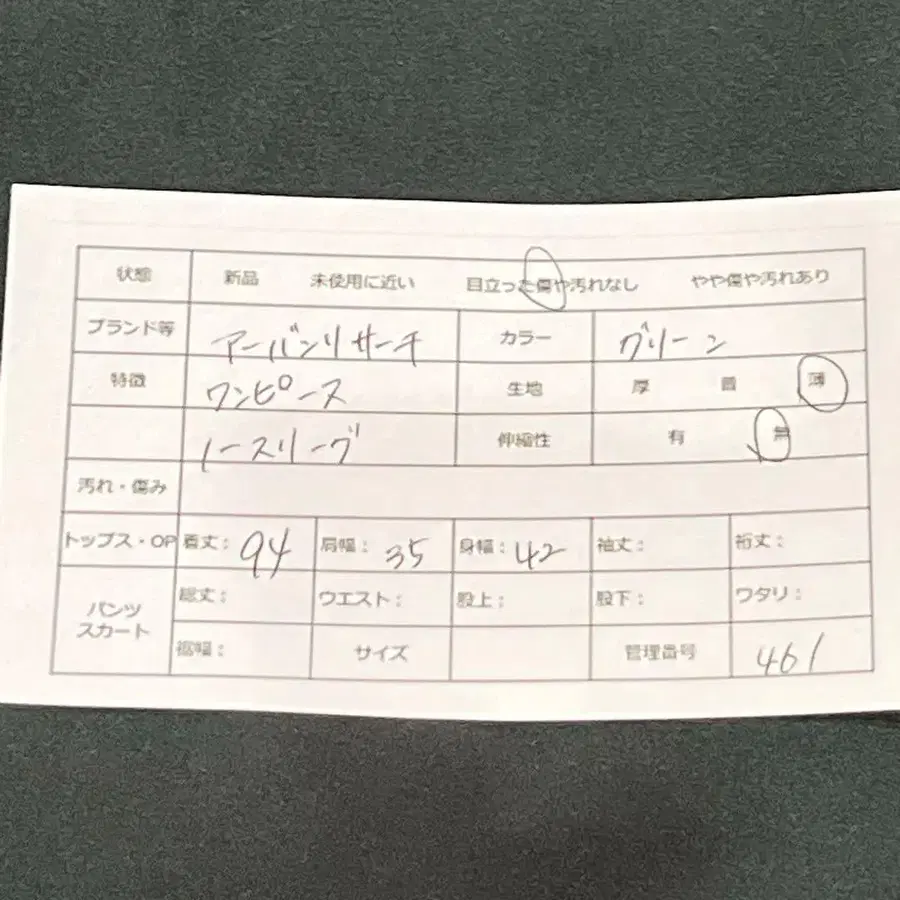 状態 新品 未使用に近い 目立った傷や汚れなし やや傷や汚れあり
ブランド等 アーバンリサーチ カラー グリーン
特徴 ワンピース 生地 厚 普 薄
ノースリーブ 伸縮性 有 無
汚れ・傷み
トップス・OP 着丈: 94 肩幅: 35 身幅: 42 袖丈: 裄丈:
パンツ スカート 総丈: ウエスト: 股上: 股下: ワタリ:
裾幅: サイズ 管理番号 461